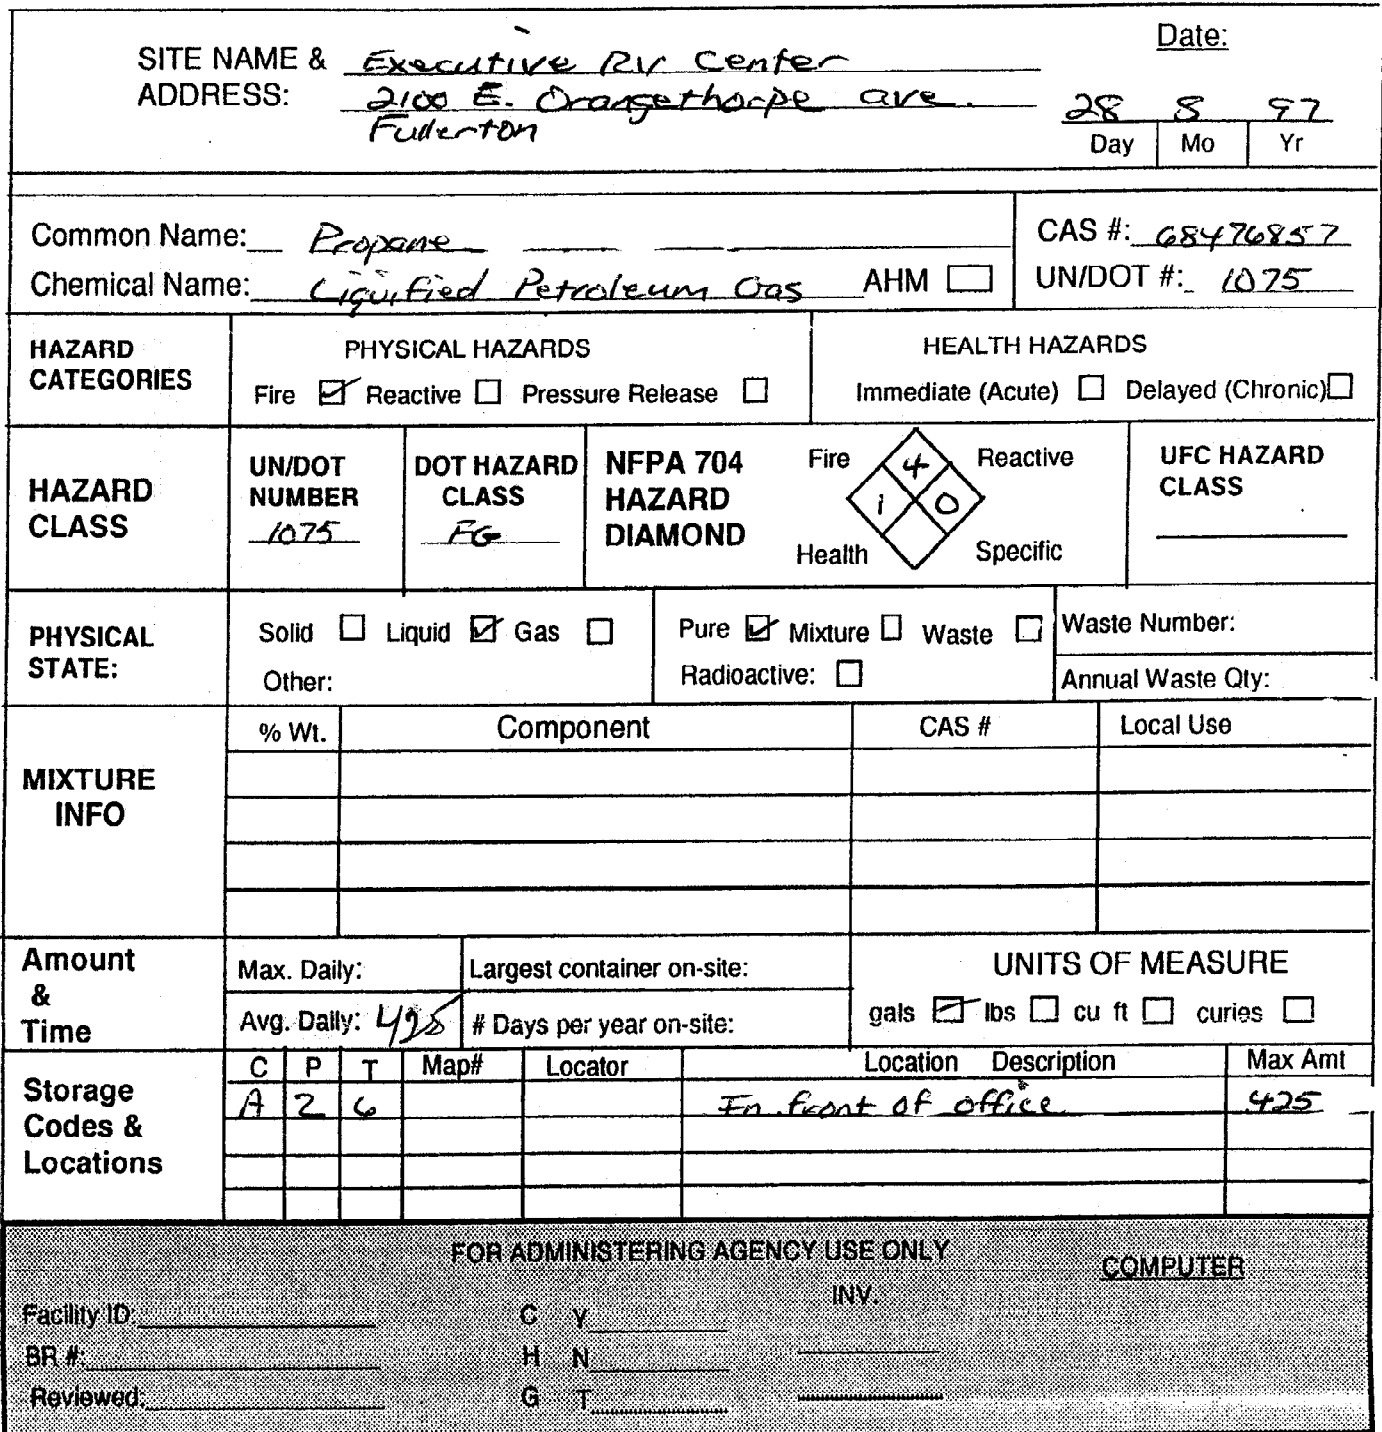 Date:
SITE NAME & Executive RV Center
ADDRESS: 2100 E. Orangethorpe ave.
Fullerton
28 8 97
Day Mo Yr
Common Name: Propane CAS #: 68476857
Chemical Name: Liquified Petroleum Gas AHM UN/DOT #: 1075
HAZARD CATEGORIES
PHYSICAL HAZARDS
Fire Reactive Pressure Release
HEALTH HAZARDS
Immediate (Acute) Delayed (Chronic)
HAZARD CLASS
UN/DOT NUMBER
1075
DOT HAZARD CLASS
FG
NFPA 704
HAZARD
DIAMOND
Fire 4 Reactive
1 0
Health Specific
UFC HAZARD
CLASS
PHYSICAL STATE:
Solid Liquid Gas
Other:
Pure Mixture Waste
Radioactive:
Waste Number:
Annual Waste Qty:
MIXTURE INFO
% Wt. Component CAS # Local Use
Amount & Time
Max. Daily: Largest container on-site:
Avg. Daily: 425 # Days per year on-site:
UNITS OF MEASURE
gals lbs cu ft curies
Storage Codes & Locations
C P T Map# Locator Location Description Max Amt
A 2 6 In front of office 425
FOR ADMINISTERING AGENCY USE ONLY
COMPUTER
INV.
Facility ID: C Y
BR #: H N
Reviewed: G T